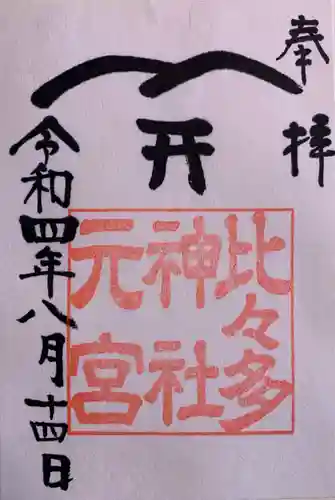 奉拝
开
比々多
神社
元宮
令和四年八月十四日